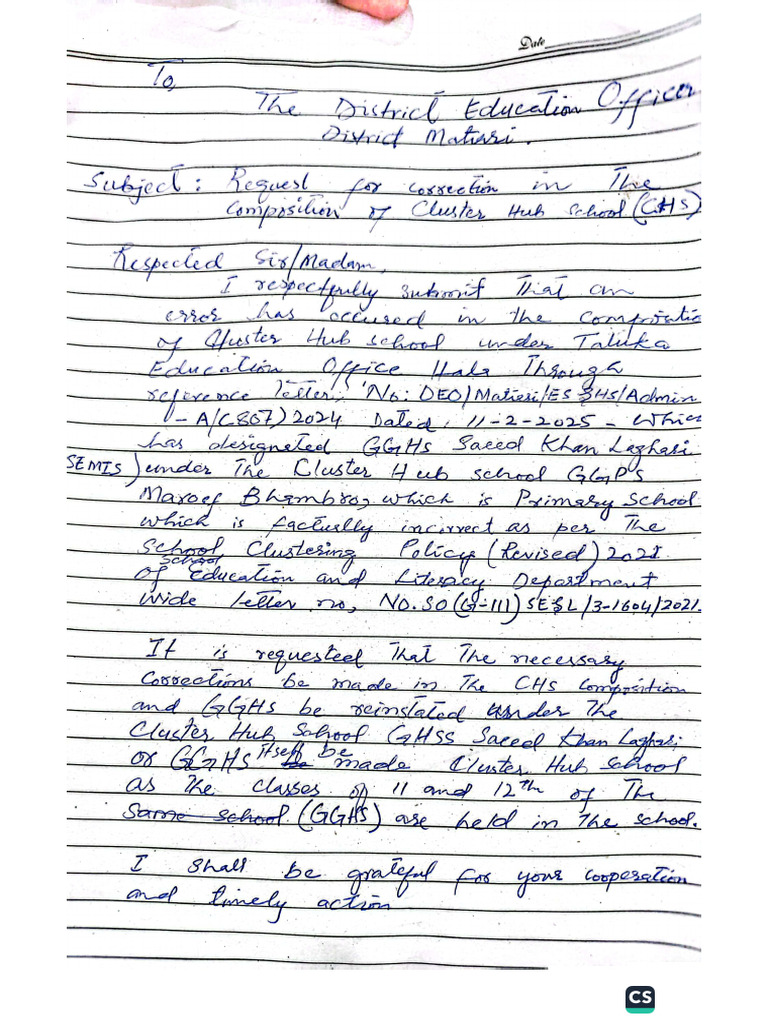 Date
To,
The District Education Officer
District Matiari.
Subject: Request for correction in the
composition of Cluster Hub School (CHS)
Respected Sir/Madam,
I respectfully submit that an
error has occured in the compositio
of Cluster Hub school under Taluka
Education Office Hala Through
reference letter, No: DEO/Matiari/ES &HS/Admin
-A/(807) 2024 Dated, 11-2-2025 - which
has designated GGHS Saeed Khan Laghari
SEMIS ) under the Cluster Hub school GGPS
Maroof Bhambro, which is Primary School
which is factually incorrect as per the
School Clustering Policy (Revised) 2021.
of school Education and Literacy Department
wide letter no, NO.SO(G-III) SE&L/3-1604/2021.
It is requested that the necessary
corrections be made in the CHS composition
and GGHS be reinstated under the
Cluster Hub School GHSS Saeed Khan Laghari
or GGHS itself be made Cluster Hub School
as the classes of 11 and 12th of the
same school (GGHS) are held in the school.
I shall be grateful for your cooperation
and timely action
CS